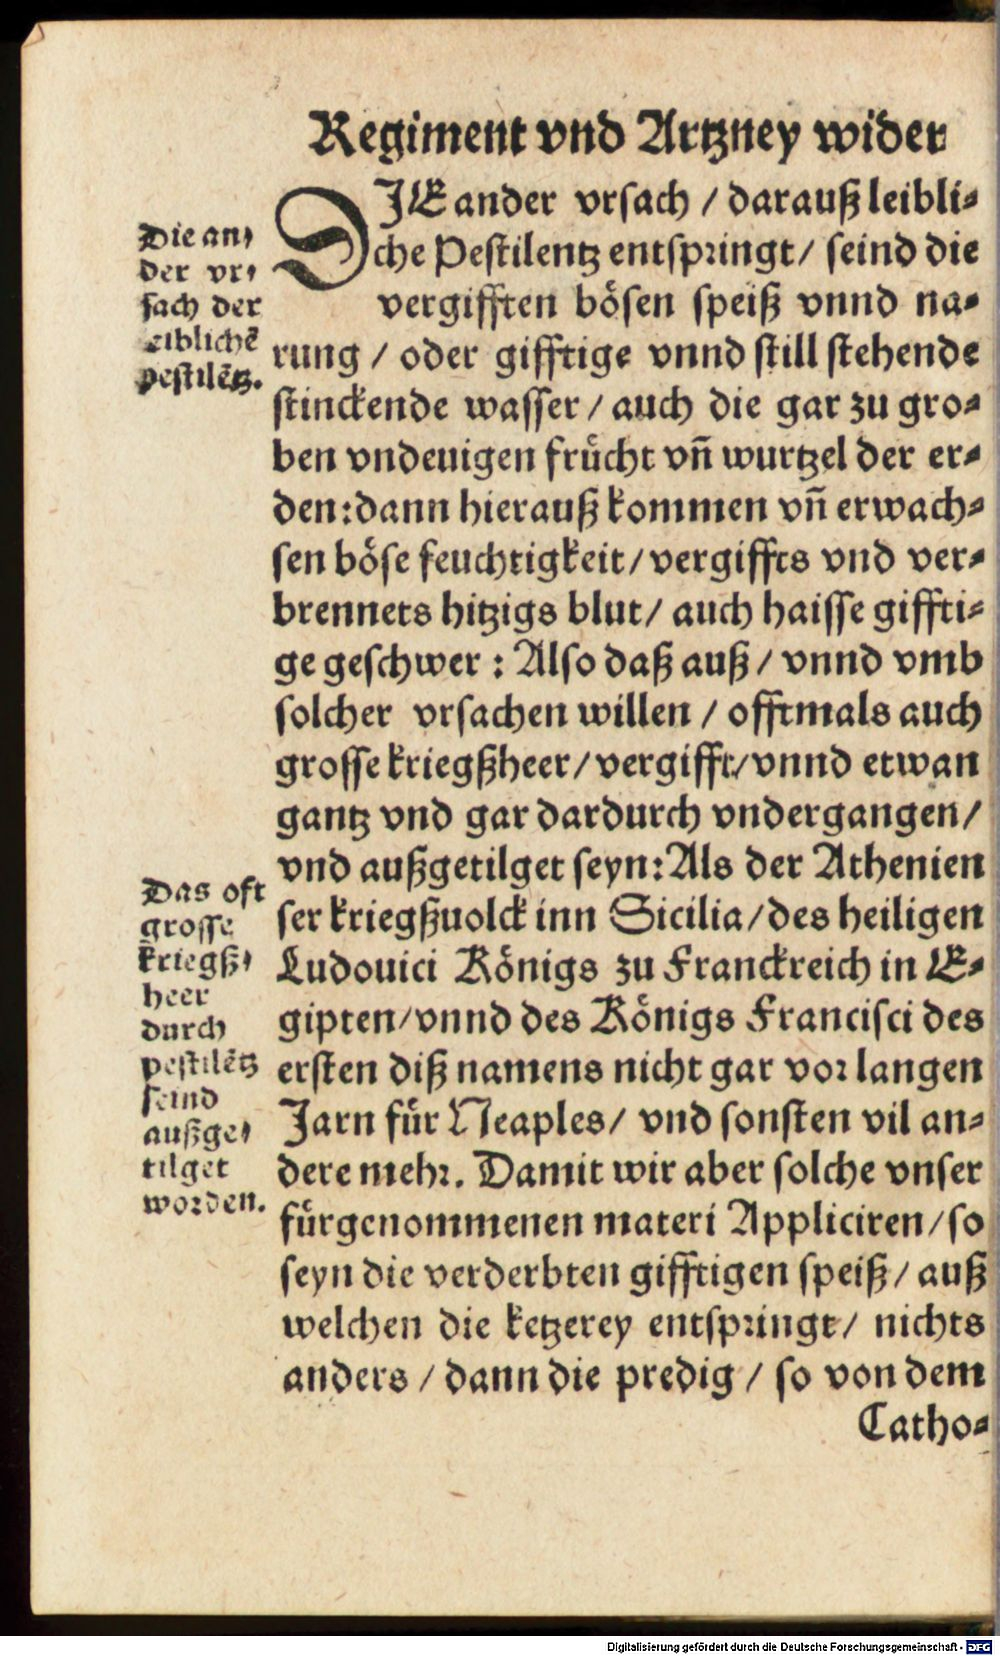 Regiment vnd Artzney wider
DJE ander vrsach / darauß leibli-
che Pestilentz entspringt / seind die
vergifften bösen speiß vnnd na-
rung / oder gifftige vnnd still stehende
stinckende wasser / auch die gar zu gro-
ben vndeuigen frücht vñ wurtzel der er-
den: dann hierauß kommen vñ erwach-
sen böse feuchtigkeit / vergiffts vnd ver-
brennets hitzigs blut / auch haisse giffti-
ge geschwer : Also daß auß / vnnd vmb
solcher vrsachen willen / offtmals auch
grosse kriegßheer / vergifft / vnnd etwan
gantz vnd gar dardurch vndergangen /
vnd außgetilget seyn: Als der Athenien
ser kriegßuolck inn Sicilia / des heiligen
Ludouici Königs zu Franckreich in E-
gipten / vnnd des Königs Francisci des
ersten diß namens nicht gar vor langen
Jarn für Neaples / vnd sonsten vil an-
dere mehr. Damit wir aber solche vnser
fürgenommenen materi Appliciren / so
seyn die verderbten gifftigen speiß / auß
welchen die ketzerey entspringt / nichts
anders / dann die predig / so von dem
Catho-
Die an-
der vr-
sach der
leiblichẽ
pestilẽtz.
Das oft
grosse
kriegß-
heer
durch
pestilẽtz
seind
außge-
tilget
worden.
Digitalisierung gefördert durch die Deutsche Forschungsgemeinschaft - DFG